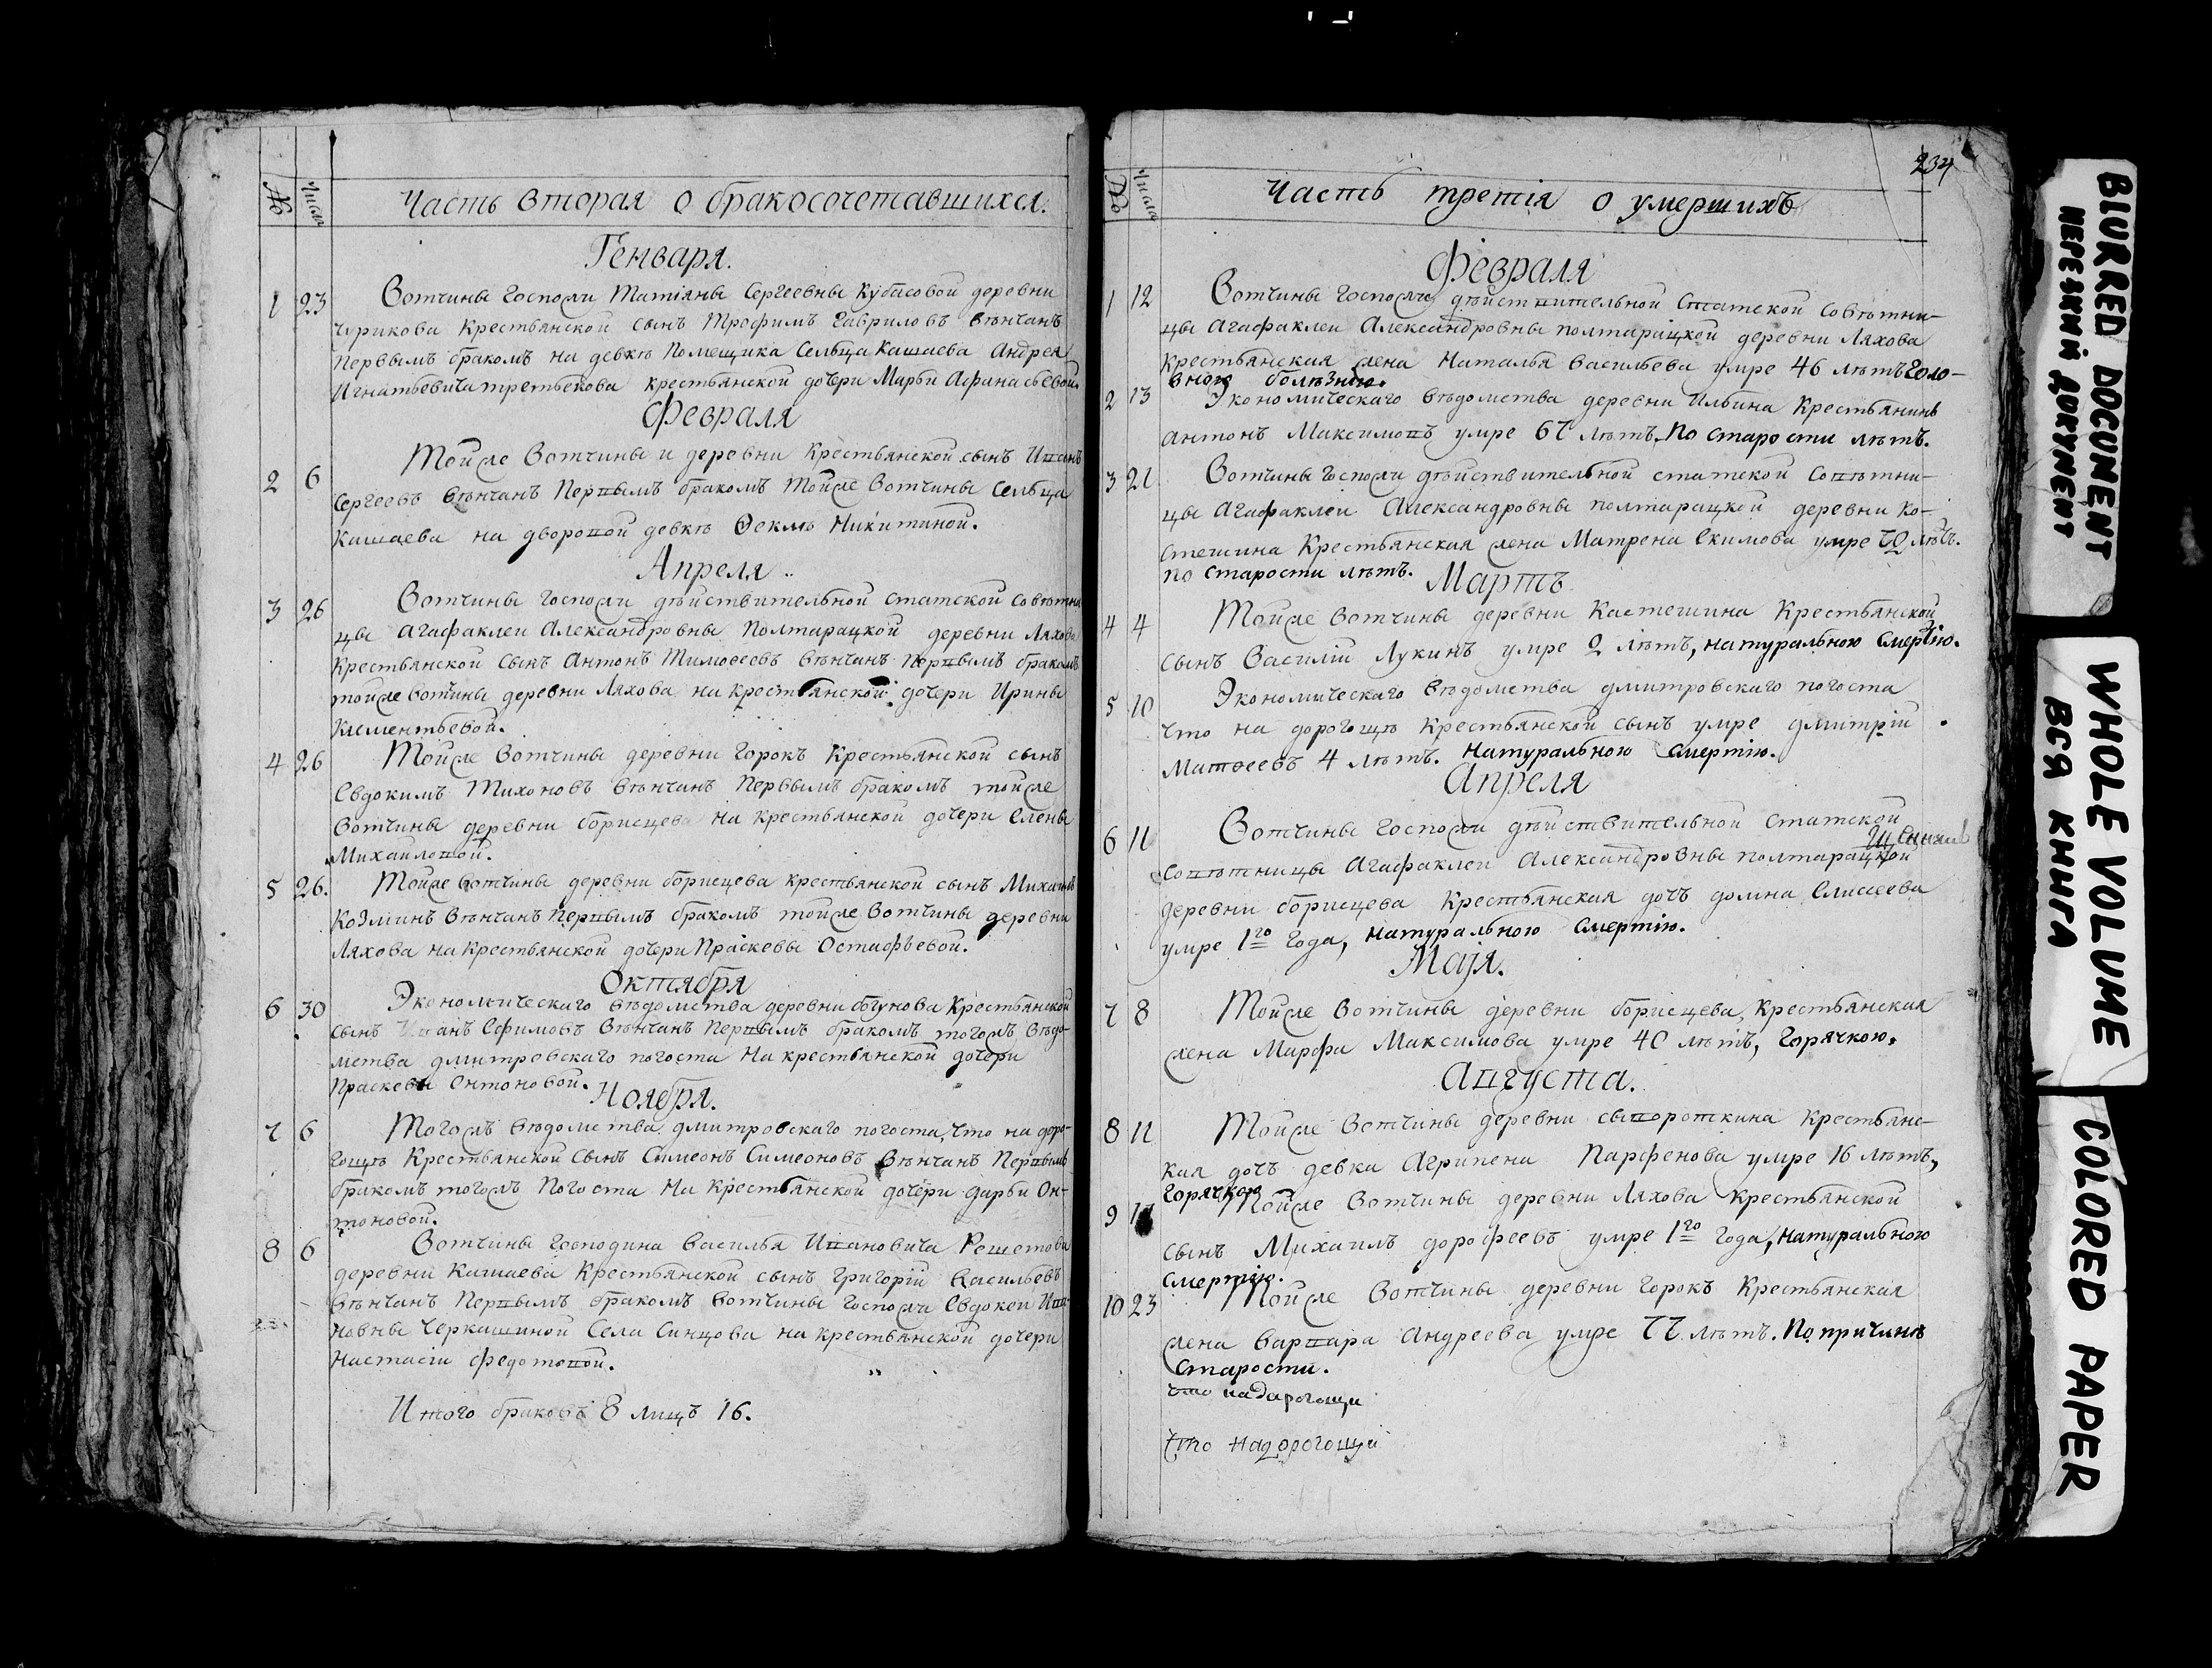 № Числа
Часть вторая о бракосочетавшихся.
Генваря.
1 23 Вотчины Госпожи Татіяны Сергеевны Кубасовой деревни
Чурикова Крестьянской сынъ Трофимъ Гавриловъ вѣнчанъ
Первымъ бракомъ на девкѣ Помещика Сельца Кашаева Андрея
Игнатьевича третьякова крестьянской дочери Марьи Афанасьевой
Февраля
2 6 Тойже Вотчины и деревни Крестьянской сынъ Иванъ
Сергеевъ вѣнчанъ Первымъ бракомъ Тойже Вотчины Сельца
Кашаева на дворовой девкѣ Ѳеклѣ Никитиной.
Апреля
3 26 Вотчины Госпожи дѣйствительной статской совѣтни
цы Агафаклеи Александровны Полтарацкой деревни Ляхова
Крестьянской Сынъ Антонъ Тимоѳеевъ вѣнчанъ первымъ бракомъ
тойже вотчины деревни Ляхова на крестьянской дочери Ирины
Клементьевой.
4 26 Тойже Вотчины деревни Горокъ Крестьянской сынъ
Евдокимъ Тихоновъ вѣнчанъ Первымъ бракомъ тойже
Вотчины деревни борисцева на крестьянской дочери Елены
Михайловой.
5 26. Тойже вотчины деревни борисцева крестьянской сынъ Михаилъ
Козминъ вѣнчанъ Первымъ бракомъ тойже Вотчины деревни
Ляхова на Крестьянской дочери Праскевы Остафьевой.
Октября
6 30 Экономическаго вѣдомства деревни бѣгунова Крестьянской
сынъ Иванъ Ефимовъ Вѣнчанъ Первымъ бракомъ тогожъ вѣдо-
мства дмитревскаго погоста на крестьянской дочери
Праскевы Онтоновой.
Ноября.
7 6 Тогожъ вѣдомства дмитровскаго погоста, что на доро-
гощѣ Крестьянской Сынъ Симеонъ Симеоновъ Вѣнчанъ Первымъ
бракомъ тогожъ Погоста На Крестьянской дочери дарьи Он-
тоновой.
8 6 Вотчины господина Василья Ивановича Решетова
деревни Кашаева Крестьянской сынъ григорій Васильевъ
вѣнчанъ Первымъ бракомъ вотчины Госпожи Евдокеи Ива-
новны Черкашиной Села Синцова на крестьянской дочери
Настасіи федотовой.
Итого браковъ 8 лицъ 16.
234
№ Числа
Часть третія о умершихъ
Февраля
1 12 Вотчины Госпожи дѣйствительной Статской Совѣтни-
цы Агафаклеи Александровны полтарацкой деревни Ляхова
Крестьянская жена Наталья Васильева умре 46 лѣтъ Голо-
вною болѣзнію.
2 13 Экономическаго вѣдомства деревни Ильина Крестьянинъ
Антонъ Максимовъ умре 67 лѣтъ. По старости лѣтъ.
3 21 Вотчины Госпожи дѣйствительной статской совѣтни-
цы Агафаклеи Александровны полтарацкой деревни Ко-
стешина Крестьянская жена Матрена Екимова умре 70 лѣтъ.
по старости лѣтъ.
Мартъ
4 4 Тойже вотчины деревни Кастешина Крестьянской
сынъ Василій Лукинъ умре 2 лѣтъ, натуральною смертію.
5 10 Экономическаго вѣдомства дмитровскаго погоста
что на дорогощѣ крестьянской сынъ умре дмитрій
Матвеевъ 4 лѣтъ. Натуральною Смертію.
Апреля
6 11 Вотчины Госпожи дѣйствительной статской
Совѣтницы Агафаклеи Александровны полтарацкой
деревни борисцева Крестьянская дочь домна Елисеева
умре 1го года, натуральною смертію.
Маія.
7 8 Тойже Вотчины деревни борисцева, Крестьянская
жена Марфа Максимова умре 40 лѣтъ, Горячкою.
Августа.
8 11 Тойже Вотчины деревни сывороткина Крестьянс-
кая дочь девка Агрипена Парфенова умре 16 лѣтъ,
Горячкою
9 17 Тойже Вотчины деревни Ляхова Крестьянской
сынъ Михаилъ дорофеевъ умре 1го года, натуральною
смертію.
10 23 Тойже Вотчины деревни горокъ Крестьянская
жена варвара Андреева умре 77 лѣтъ. По причинѣ
Старости.
что надарогощи
что надорогощи
BlURRED DOCUMENT
НЕРЕЗКИЙ ДОКУМЕНТ
WHOLE VOLVME
ВСЯ КНИГА
COLORED PAPER